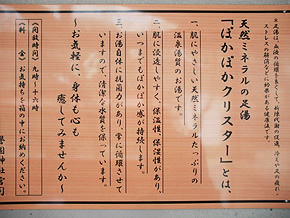 足湯は、血液の循環を良くして、新陳代謝の促進、冷えや足の疲れ、
ストレスの解消などに効果がある健康法です。
天然ミネラルの足湯
「ぽかぽかクリスター」とは、
一、肌にやさしい天然ミネラルたっぷりの
温泉水質のお湯です。
二、肌に浸透しやすく、保温性、保湿性があり、
いつまでもぽかぽか感が持続します。
三、お湯自体に抗菌力があり、常に循環させて
いますので、清潔な水質を保っています。
～お気軽に、身体も心も
癒してみませんか～
（開時間）九時～十六時
（料　金）お気持ちを箱の中にお納めください。
神社宮司